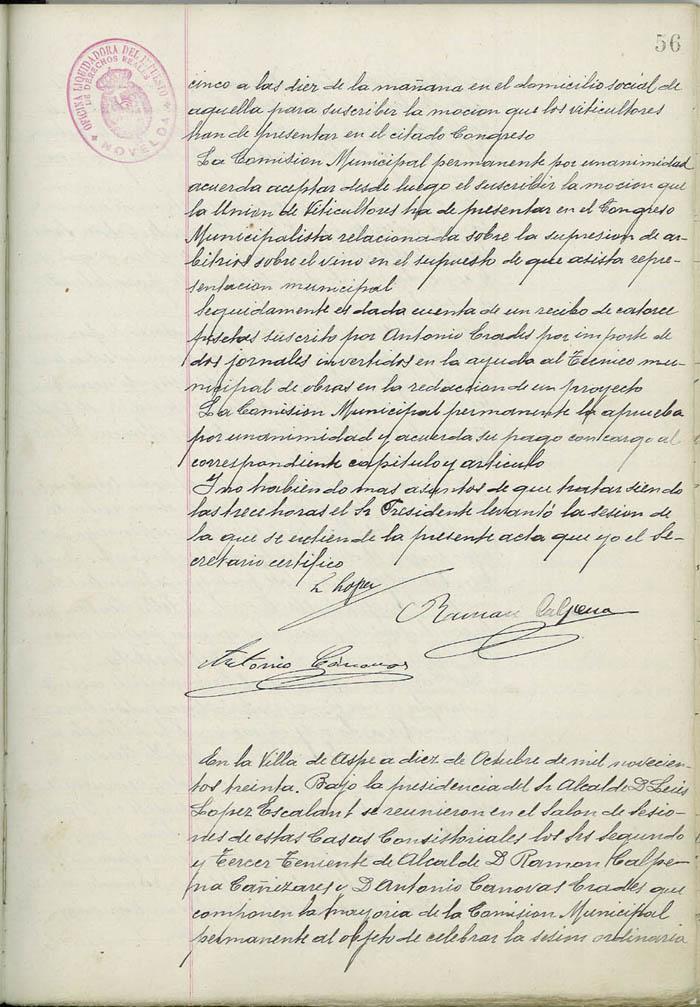 56
OFICINA LIQUIDADORA DEL IMPUESTO
DE DERECHOS REALES
NOVELDA
cinco a las diez de la mañana en el domicilio social de
aquella para suscribir la mocion que los viticultores
han de presentar en el citado Congreso
La Comision Municipal permanente por unanimidad
acuerda aceptar desde luego el suscribir la mocion que
la Union de Viticultores ha de presentar en el Congreso
Municipalista relacionada sobre la supresion de ar-
bitrios sobre el vino en el supuesto de que asista repre-
sentacion municipal
Seguidamente es dada cuenta de un recibo de catorce
pesetas suscrito por Antonio Prades por importe de
dos jornales invertidos en la ayuda al Tecnico mu-
nicipal de obras en la redaccion de un proyecto
La Comision Municipal permanente lo aprueba
por unanimidad y acuerda su pago con cargo al
correspondiente capitulo y articulo
Y no habiendo mas asuntos de que tratar siendo
las trece horas el Sr Presidente levantó la sesion de
la que se extiende la presente acta que yo el Se-
cretario certifico
L Lopez
Ramon Calpena
Antonio Canovas
En la Villa de Aspe a diez de Octubre de mil novecien-
tos treinta. Bajo la presidencia del Sr Alcalde D Luis
Lopez Escalant se reunieron en el Salon de Sesio-
nes de estas Casas Consistoriales los Srs Segundo
y Tercer Teniente de Alcalde D Ramon Calpe-
na Cañizares y D Antonio Canovas Prades que
componen la mayoria de la Comision Municipal
permanente al objeto de celebrar la sesion ordinaria